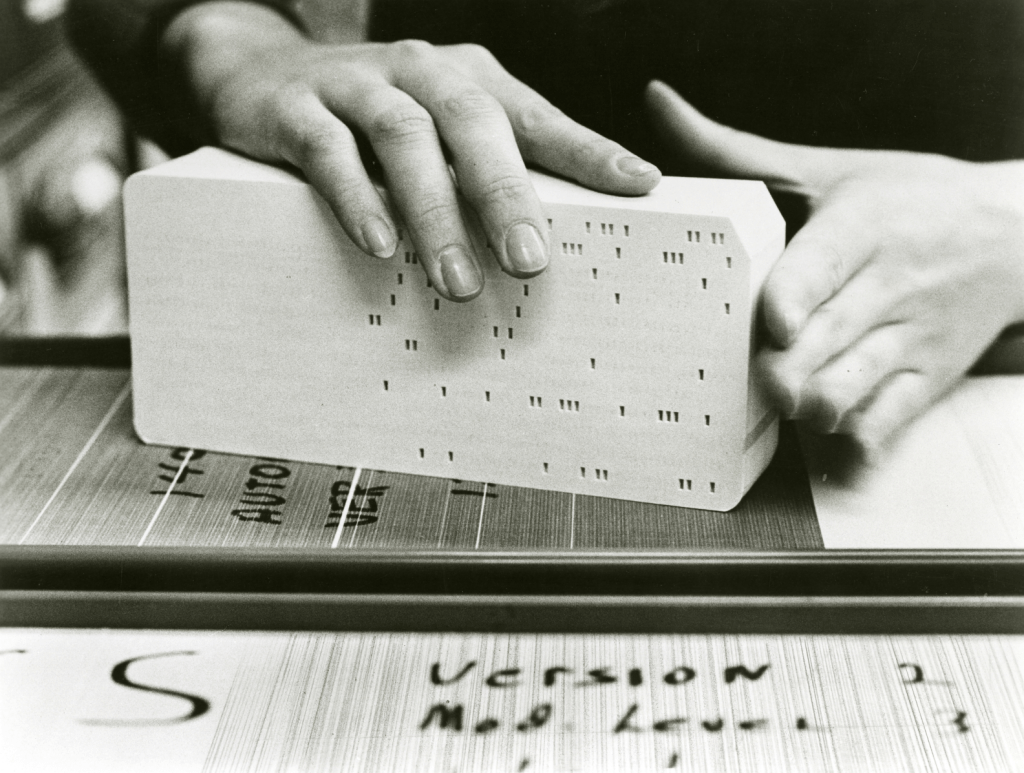 AUTO
VER
S Version 2
Mod. Level 3